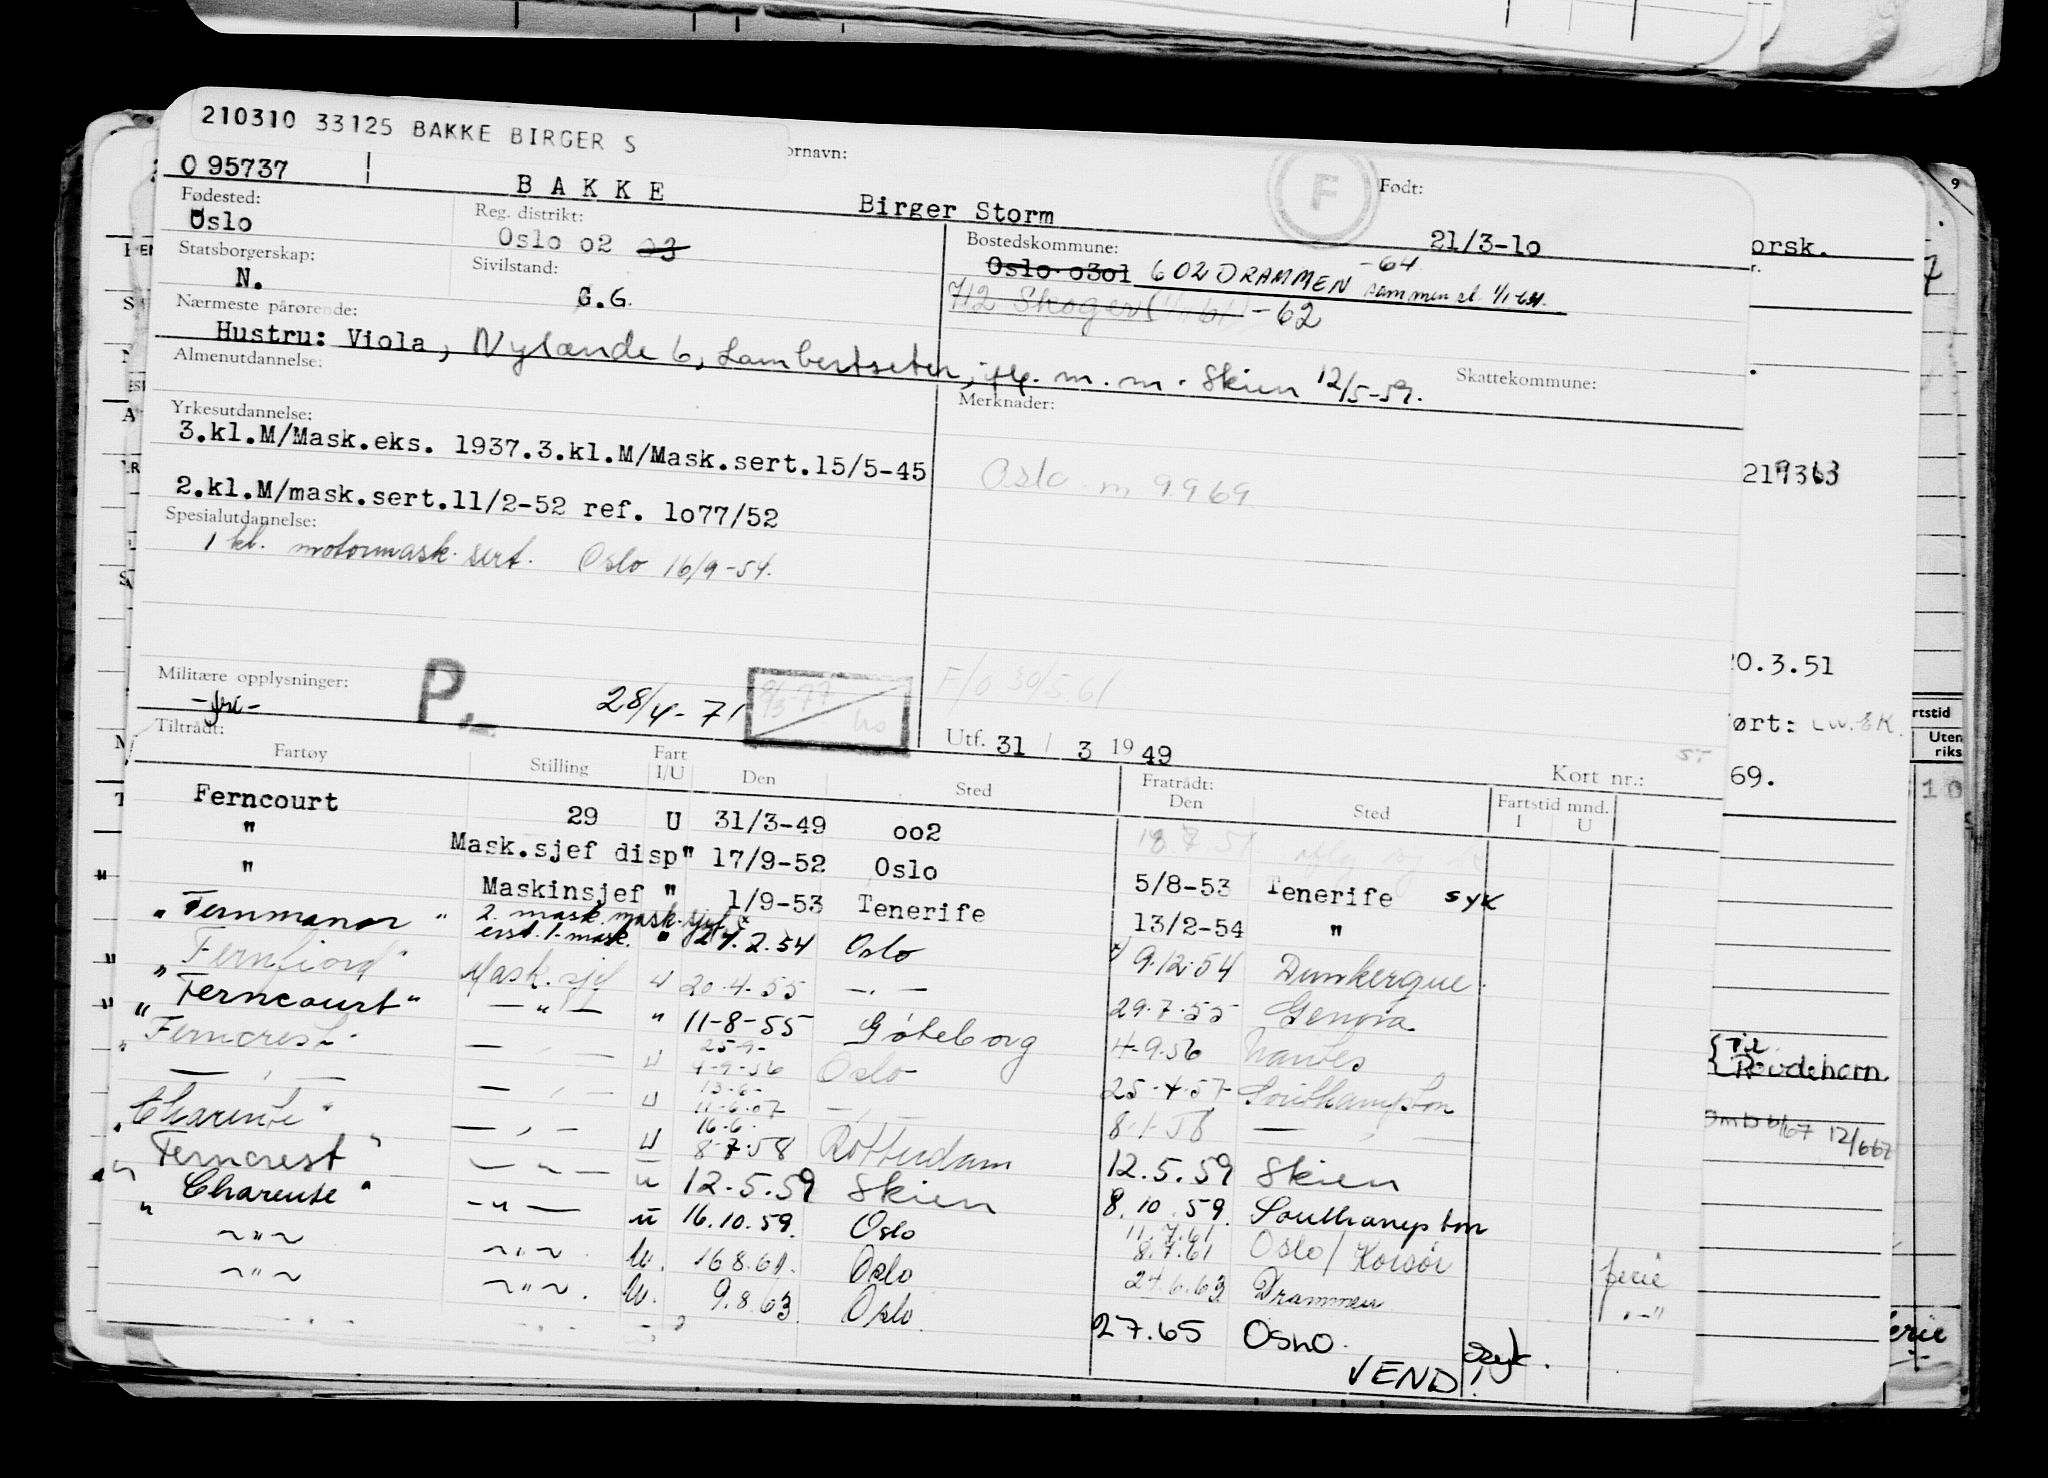 210310 33125 BAKKE BIRGER S
ornavn:
O 95737 BAKKE Birger Storm
F
Født:
21/3-1o
Fødested:
Oslo
Reg. distrikt:
Oslo o2 o3
Bostedskommune:
Oslo o3o1 602 DRAMMEN -64
712 Skoger -62
Statsborgerskap:
N.
Sivilstand:
G.
Nærmeste pårørende:
Hustru: Viola, Nylænde 6, Lambertseter, m. m. Skien 12/5-59.
Almenutdannelse:
Skattekommune:
Yrkesutdannelse:
Merknader:
3.kl.M/Mask.eks. 1937.3.kl.M/Mask.sert.15/5-45
Oslo m 9969
2.kl.M/mask.sert.11/2-52 ref. 1o77/52
Spesialutdannelse:
1 kl. motormask. sert. Oslo 16/9-54.
Militære opplysninger:
P.
28/4-71
F/o 30/5 61
Utf. 31 / 3 19 49
Tiltrådt:
Fartøy Stilling Fart I/U Den Sted Fratrådt: Den Sted Kort nr.: Fartstid mnd. I U
Ferncourt 29 U 31/3-49 oo2
" Mask.sjef disp" 17/9-52 Oslo 5/8-53 Tenerife syk
" " Maskinsjef " 1/9-53 Tenerife 13/2-54 "
" Fernmanor " 2. mask. mask.sjef " 2.54 Oslo 9.12.54 Dunkerque.
" Fernfiord " Mask. sjef U 20.4.55 29.7.55 Genova
" Ferncourt " " 11-8-55 Göteborg 4-9.56 Nantes
" Ferncrest " U 25-9- 4-9-56 Oslo 25-4-57 Southampton
U 13-6- 11-6-57 8-1-58
" Charente " U 16.6. 8-7-58 Rotterdam 12.5.59 Skien
" Ferncrest " u 12.5.59 Skien 8.10.59 Southampton
" Charente " u 16.10.59. Oslo 11.7.61 8.7.61 Oslo/Korsör ferie
" " U. 16.8.61. Oslo 24.6.63 Drammen "
" " U. 9.8.63 Oslo 2 7.65 OSLO. Syk.
VEND!
orsk.
219363
20.3.51
ørt:
69.
rtstid
Uten
riks
10
9
ferie